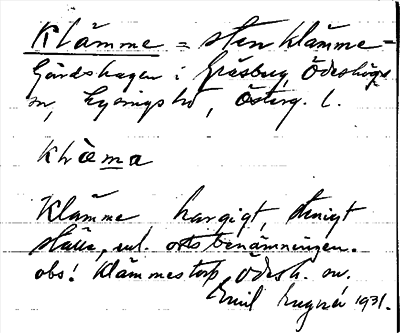 Klämme = stenklämme-
Gärdshagen i Gräsberg, Ödeshögs
sn, Lysings hd, Österg. l.
Klèma
Klämme hargigt, stenigt
ställe, enl. ortsbenämningen.
obs! Klämmestorp Ödesh. sn.
Emil 1931.